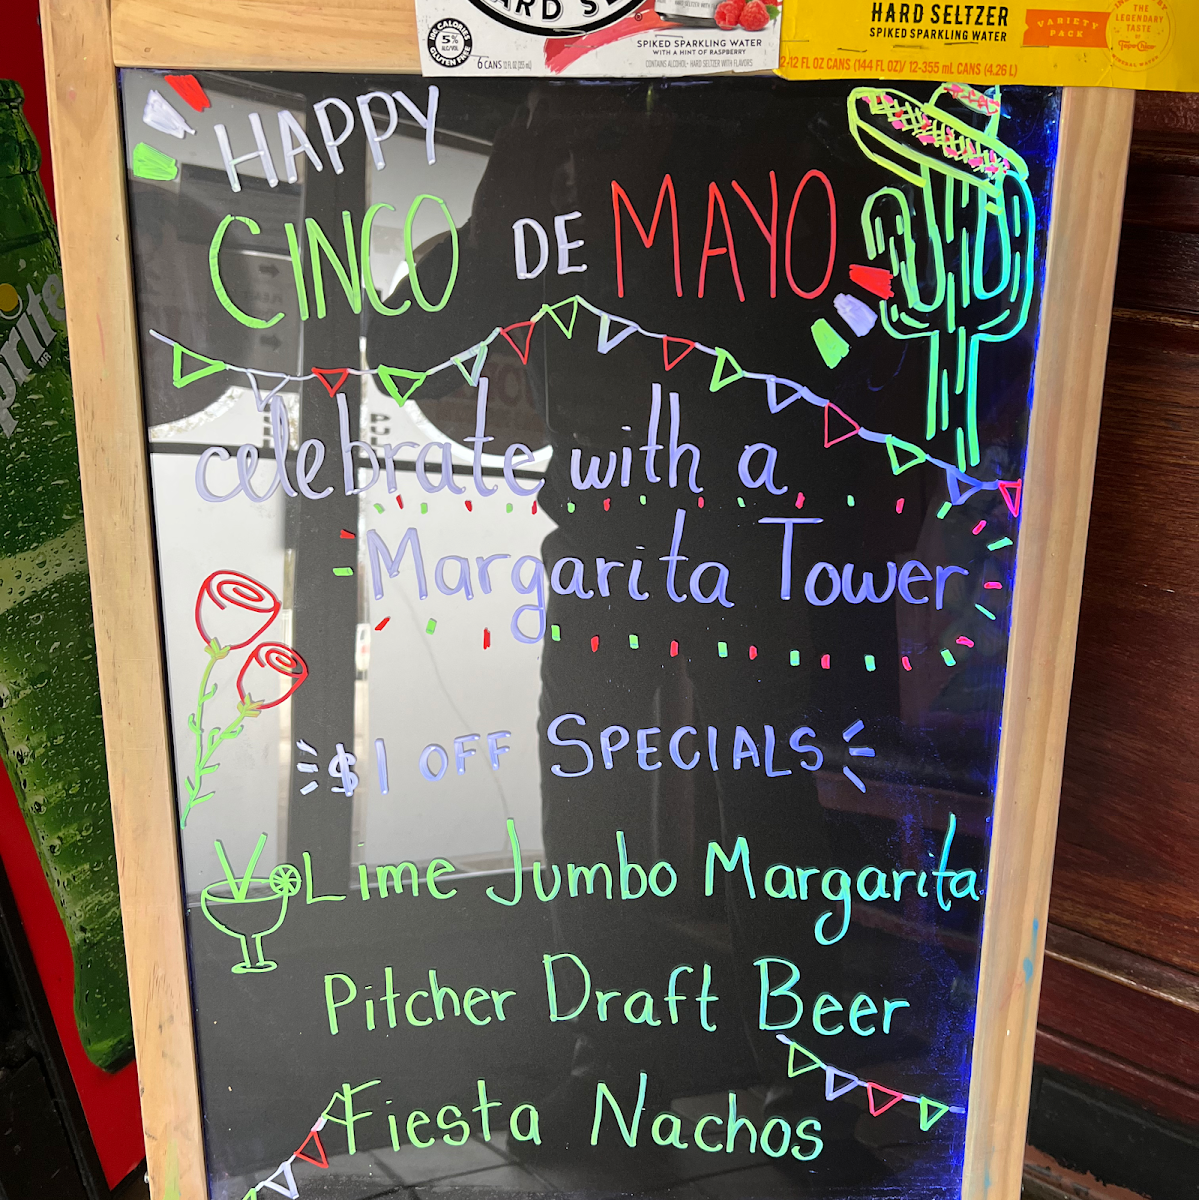 HARD SE
100 CALORIES
5%
ALC/VOL
GLUTEN FREE
6 CANS 12 FL OZ (355 mL)
SPIKED SPARKLING WATER
WITH A HINT OF RASPBERRY
CONTAINS ALCOHOL • HARD SELTZER WITH FLAVORS
HARD SELTZER
SPIKED SPARKLING WATER
VARIETY
PACK
THE
LEGENDARY
TASTE
OF
Topo Chico
MINERAL WATER
2-12 FL OZ CANS (144 FL OZ)/ 12-355 mL CANS (4.26 L)
HAPPY
CINCO DE MAYO
celebrate with a
Margarita Tower
$1 OFF SPECIALS
Lime Jumbo Margarita
Pitcher Draft Beer
Fiesta Nachos
prite